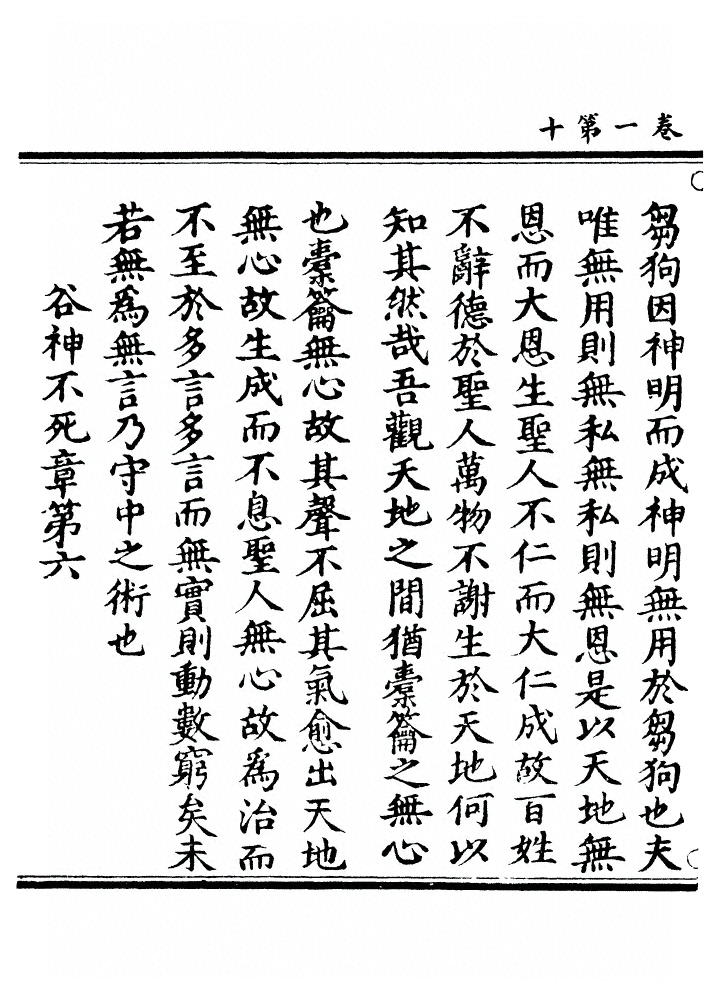 卷一第十
芻狗因神明而成神明無用於芻狗也夫
唯無用則無私無私則無恩是以天地無
恩而大恩生聖人不仁而大仁成故百姓
不辭德於聖人萬物不謝生於天地何以
知其然哉吾觀天地之間猶橐籥之無心
也橐籥無心故其聲不屈其氣愈出天地
無心故生成而不息聖人無心故為治而
不至於多言多言而無實則動數窮矣未
若無為無言乃守中之術也
谷神不死章第六